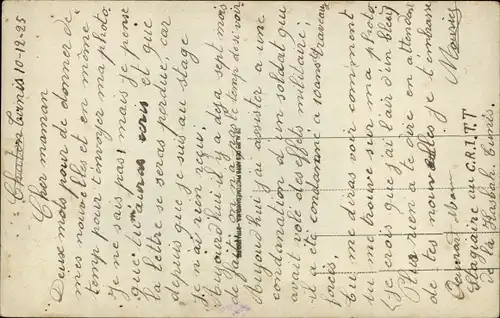 Tunis 10-12-25
Cher maman
Deux mots pour de donner de
mes nouvelles et en même
temp pour t'envoyer ma photo.
Je ne sais pas, mais je pense
que tu auras et que
la lettre se seras perdue, car
depuis que je suis au stage
j'ai rien reçu.
Aujourd'hui il y a déjà sept mois
de
Aujourd'hui j'ai assister a une
condanation d'un soldat qui
avait volé des effets militaire;
il a été condanné a 10 ans traveaux
forcés.
Tu me diras voir comment
tu me trouve sur ma photo
(Je crois que j'ai l'air d'un bleu)
Plus rien a te dire en attendant
de tes nouvelles je t'embrasse
Maurice
Stagiaire au C.R.I.T.T
Tunis.